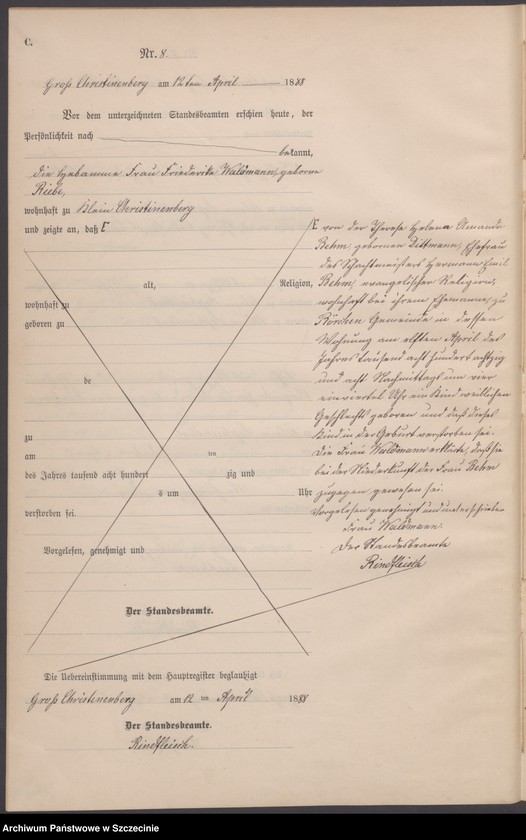 C.
Nr. 8.
Groß Christinenberg am 12ten April 1888
Vor dem unterzeichneten Standesbeamten erschien heute, der
Persönlichkeit nach
bekannt,
die Hebamme Frau Friederike Waldmann, geborne
Riebe,
wohnhaft zu Klein Christinenberg
und zeigte an, daß
alt, Religion,
wohnhaft zu
geboren zu
de
zu
am ten
des Jahres tausend acht hundert zig und
s um Uhr
verstorben sei.
Vorgelesen, genehmigt und
Der Standesbeamte.
von der Therese Helena Amanda
Behm, gebornen Dittmann, Ehefrau
des Schachtmeisters Hermann Emil
Behm, evangelischer Religion,
wohnhaft bei ihrem Ehemanne, zu
Rörchen Gemeinde in dessen
Wohnung am elften April des
Jahres tausend acht hundert achtzig
und acht Nachmittags um vier
einviertel Uhr ein Kind weiblichen
Geschlechts geboren und daß dieses
Kind in der Geburt verstorben sei.
Die Frau Waldmann erklärte, daß sie
bei der Niederkunft der Frau Behm
zugegen gewesen sei.
Vorgelesen genehmigt und unterschrieben
Frau Waldmann
Der Standesbeamte
Rindfleisch
Die Uebereinstimmung mit dem Hauptregister beglaubigt
Groß Christinenberg am 12 ten April 1888
Der Standesbeamte.
Rindfleisch.
Archiwum Państwowe w Szczecinie